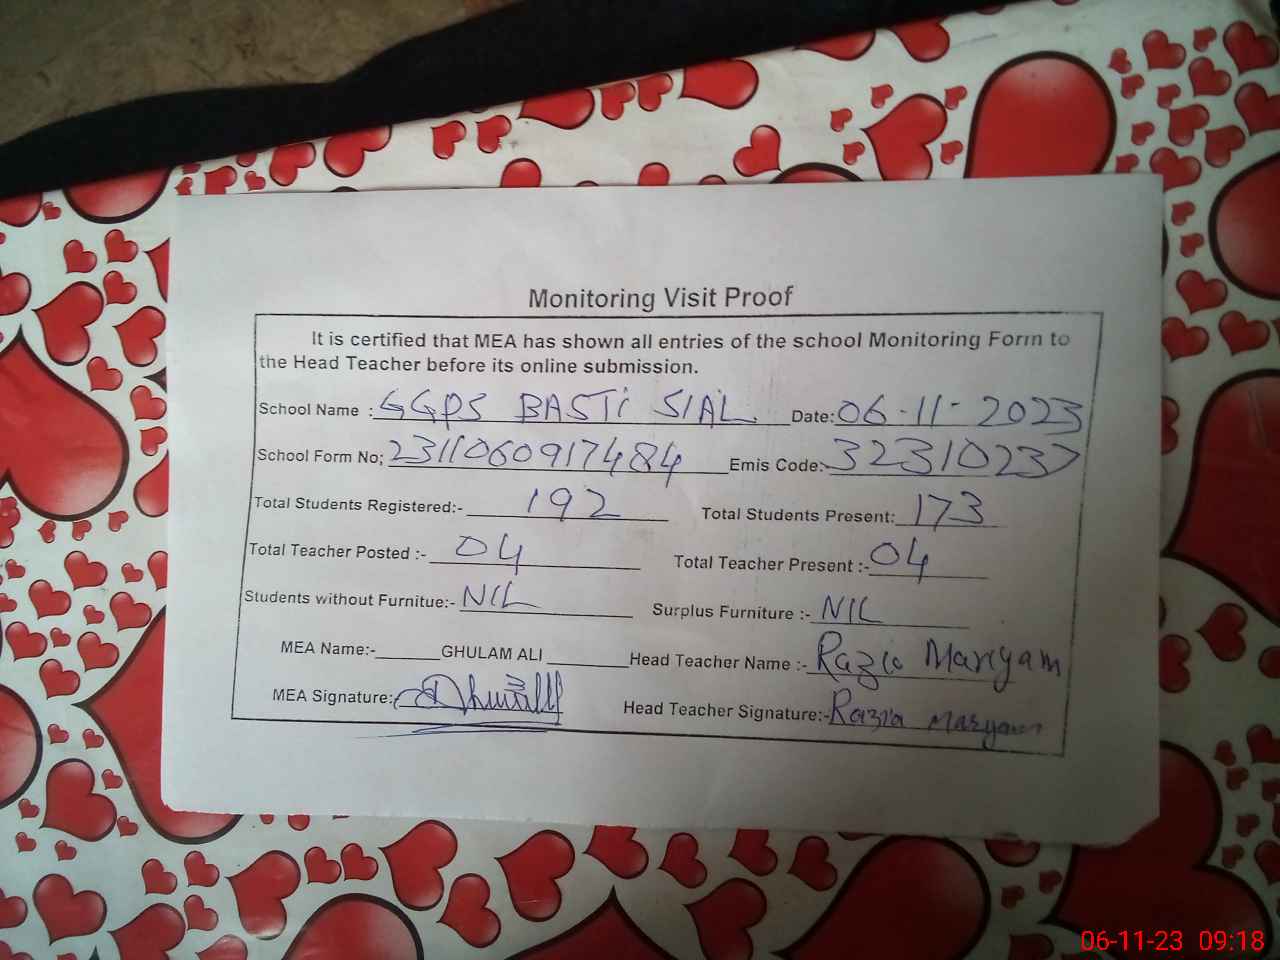 Monitoring Visit Proof
It is certified that MEA has shown all entries of the school Monitoring Form to
the Head Teacher before its online submission.
School Name : GGPS BASTI SIAL Date: 06-11-2023
School Form No; 2311060917484 Emis Code:- 32310237
Total Students Registered:- 192 Total Students Present: 173
Total Teacher Posted :- 04 Total Teacher Present :- 04
Students without Furnitue:- NIL Surplus Furniture :- NIL
MEA Name:- GHULAM ALI Head Teacher Name :- Razia Mariyam
MEA Signature: Head Teacher Signature:- Razia Maryam
06-11-23 09:18